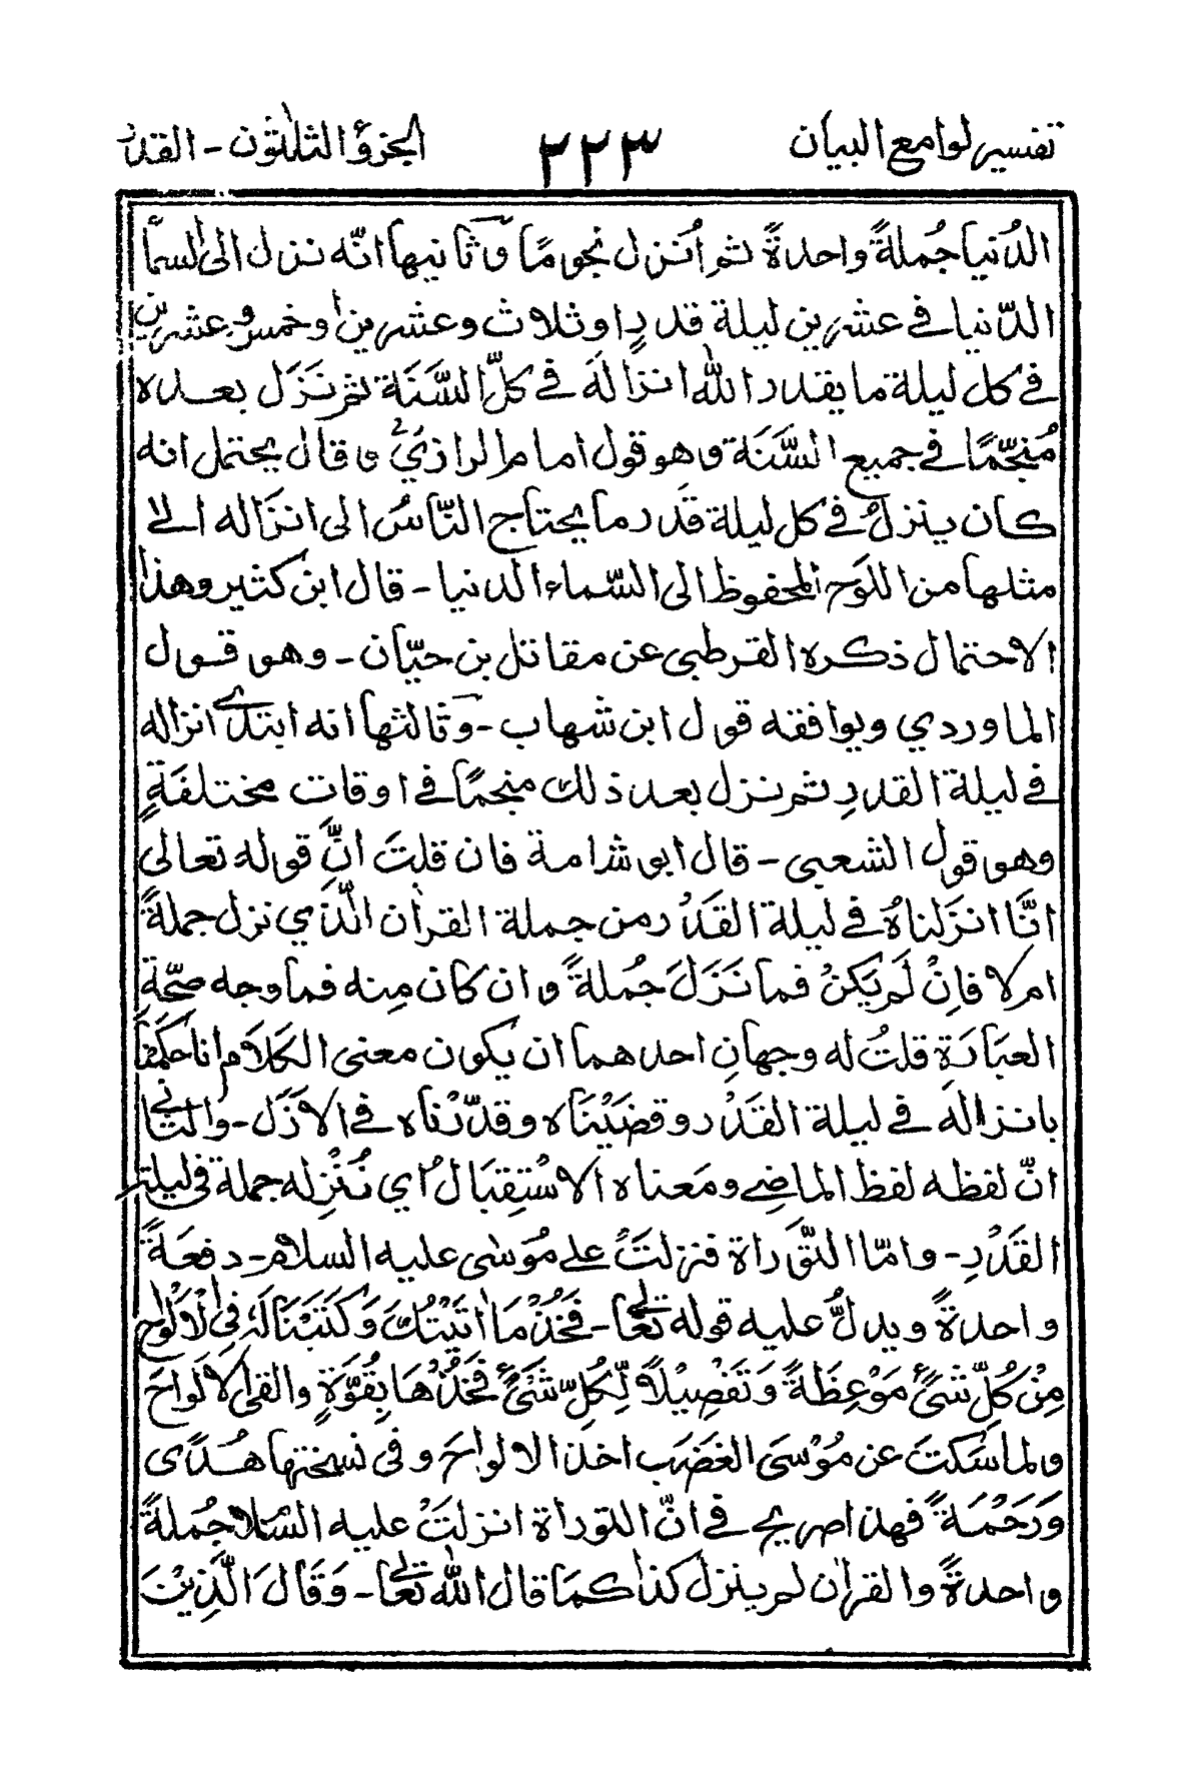 تفسير لوامع البيان ٢٢٣ الجزؤ الثلٰثون - القدر
الدُنيا جُملةً واحدةً ثم اُنزل نجومًا وثانيها انّه نزل الى السمآ
الدّنيا في عشرين ليلة قدرٍ او ثلاث وعشرين او خمس وعشرين
في كل ليلة ما يقدر الله انزالَه في كلِّ السَّنَة ثم نَزَل بعده
مُنجّمًا في جميع السَّنَة وهو قول امام الرازيؒ و قال يحتمل انه
كان ينزلُ في كل ليلة قدر ما يحتاج النّاسُ الى انزَاله الى
مثلها من اللوح المحفوظ الى السّماء الدنيا - قال ابن كثير وهذا
الاحتمال ذكره القرطبى عن مقاتل بن حيّان - وهو قول
الماوردي ويوافقه قول ابن شهاب - وثالثها انه ابتدئ انزاله
في ليلة القدرِ ثم نزل بعد ذلك منجمًا في اوقات مختلفةٍ
وهو قول الشعبى - قال ابو شامة فان قلتَ انَّ قوله تعالى
انّا انزَلناهُ في ليلة القَدْر من جملة القراٰن الّذي نزل جملةً
ام لا فاِنْ لَم يَكنْ فما نَزَلَ جُملةً و ان كان مِنه فما وجه صحّةِ
العبَارَةِ قلتُ له وجهانِ احدهما ان يكون معنى الكَلَام انا حَكَمنَا
بانزالَه في ليلة القَدْر وقضَيْنَاه وقدّرْناه في الازَل - والثاني
انّ لفظه لفظ الماضي ومَعناه الاسْتِقبَالُ اي نُنْزِله جملة في ليلة
القَدْرِ - وامّا التَّوراة فنزلتَْ على مُوسٰى عليه السلام - دفعَةً
واحدةً ويدلُّ عليه قوله تعالٰى - فَخُذْ مَا اٰتَيْتُكَ وَكَتَبْنَا لَهٗ فِى الْاَلْوَاحِ
مِنْ كُلِّ شَىْءٍ مَوْعِظَةً وَتَفْصِيْلًا لِّكُلِّ شَىْءٍ فَخُذْهَا بِقُوَّةٍ والقى الالواحَ
ولما سَكتَ عن مُوْسَى الغضَب اخذ الالواحَ وفى نسختها هُدًى
وَرَحْمَةً فهذا صريح في انّ التوراة انزلتَْ عليه السَّلام جُملةً
واحدةً والقراٰن لم ينزل كذا كمَا قال الله تعالٰى - وَقَالَ الَّذِيْنَ